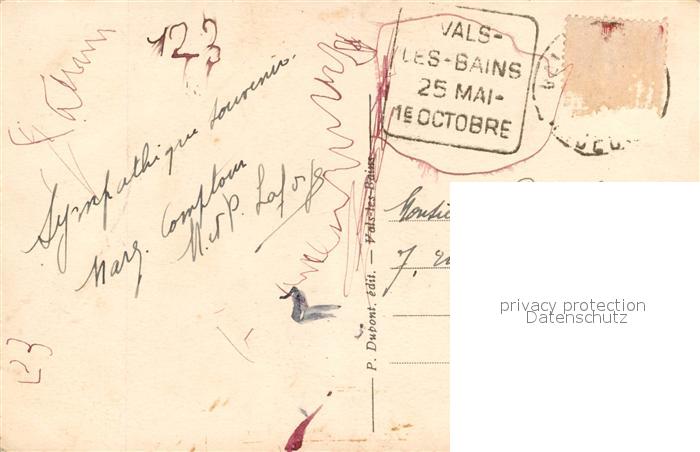 123
VALS-
LES-BAINS
25 MAI-
1E OCTOBRE
Sympathique souvenir.
Marg. Comptour
M. et P. Laforge
P. Dupont, édit. — Vals-les-Bains
Monsie
7,
123
privacy protection
Datenschutz